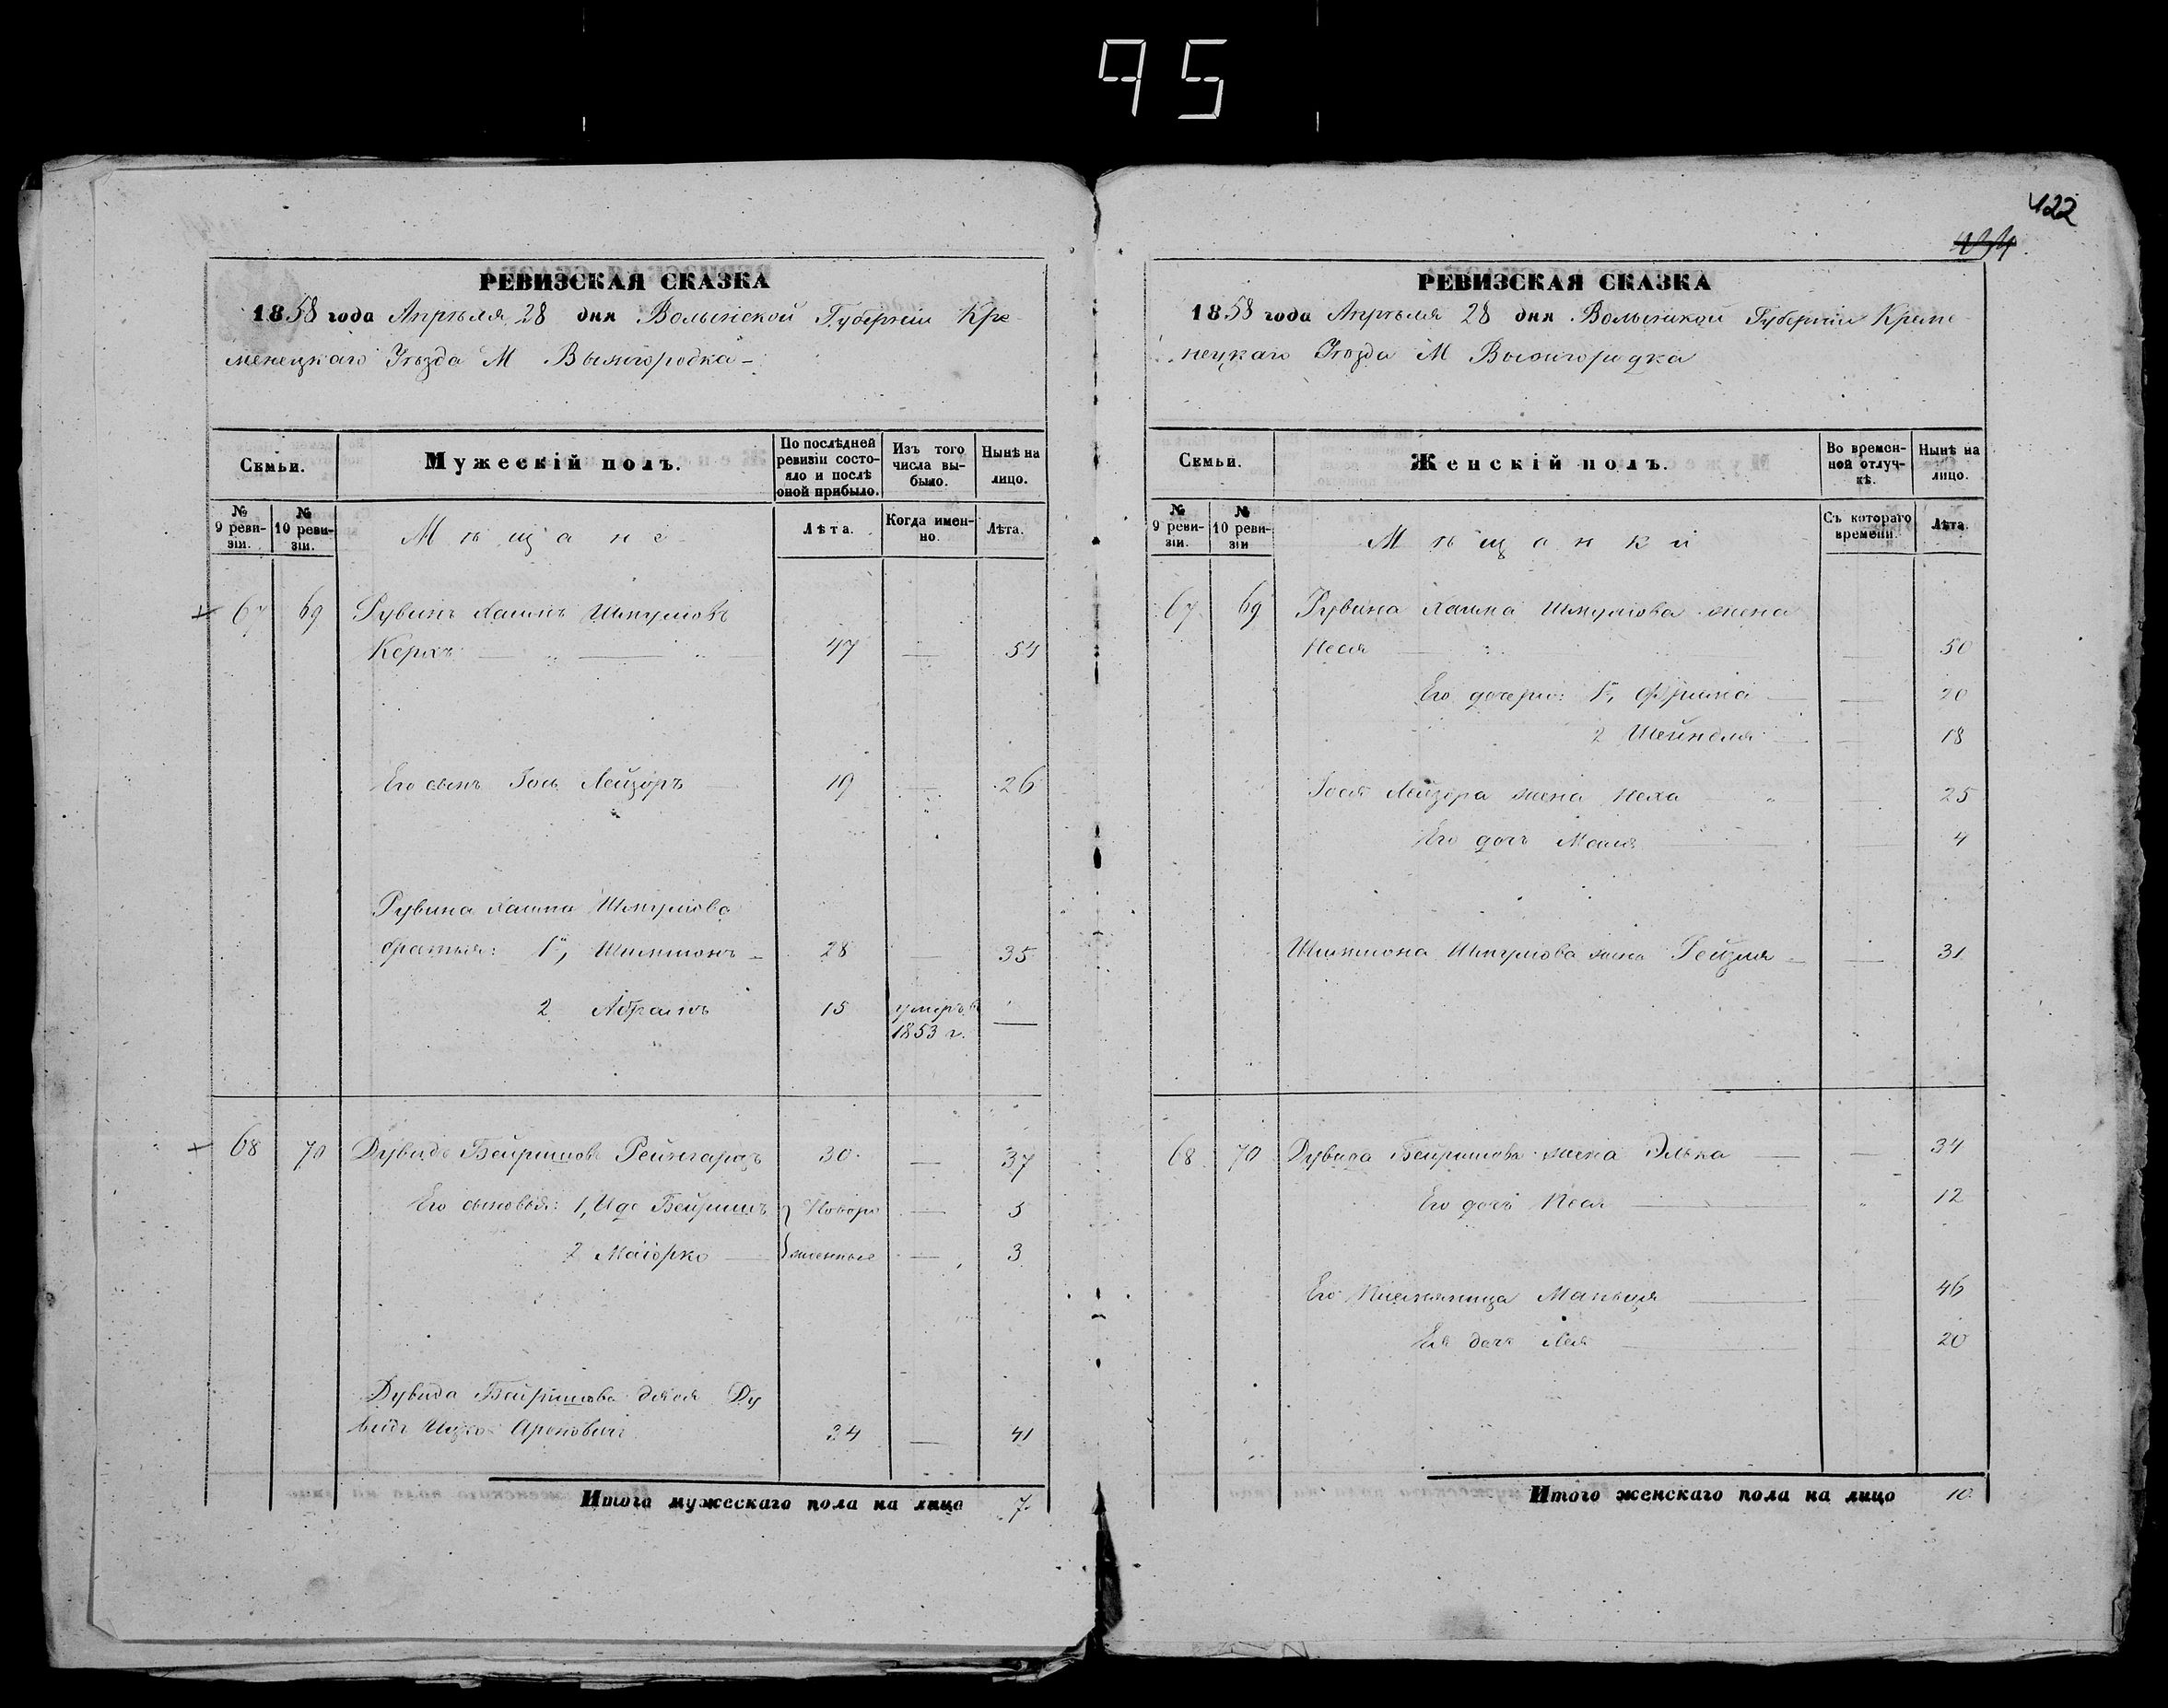 95
422
РЕВИЗСКАЯ СКАЗКА
1858 года Апрѣля 28 дня Волынской Губерніи Кре
менецкаго Уѣзда М Вышгородка
Семьи.
Мужескій полъ.
По послѣдней ревизіи состояло и послѣ оной прибыло.
Изъ того числа выбыло.
Нынѣ на лицо.
№ 9 ревизіи.
№ 10 ревизіи.
Мѣщане
Лѣта.
Когда именно.
Лѣта.
67 69 Рувинъ Хаимъ Шмулiовъ
Керкъ 47 — 54
Его сынъ Iось Лейзоръ 19 — 26
Рувина Хаима Шмулiова
братья: 1й, Шимшонъ 28 — 35
2 Абрамъ 15 умеръ в —
1853 г.
68 70 Дувидъ Бейришовъ Рейнгардъ 30 — 37
Его сыновья: 1, Иде Бейришъ Новоро — 5
2 Маiорко жденные — 3
Дувида Бейришова дядя Ду
видъ Ицко Ароновичъ 34 — 41
Итого мужескаго пола на лицо 7
РЕВИЗСКАЯ СКАЗКА
1858 года Апрѣля 28 дня Волынской Губерніи Креме
нецкаго Уѣзда М Вышгородка
Семьи.
Женскій полъ.
Во временной отлучкѣ.
Нынѣ на лицо.
№ 9 ревизіи.
№ 10 ревизіи
Мѣщанки
Съ котораго времени.
Лѣта.
67 69 Рувина Хаима Шмулiова жена
Песя — 50
Его дочери: 1я, Фрима — 20
2 Шейндля — 18
Iося Лейзора жена Неха — 25
Его дочь Маля 4
Шимшона Шмулiова жена Рейзля — 31
68 70 Дувида Бейришова жена Элька — 34
Его дочь Песя 12
Его племянница Маньця 46
Ея дочь Лея 20
Итого женскаго пола на лицо 10